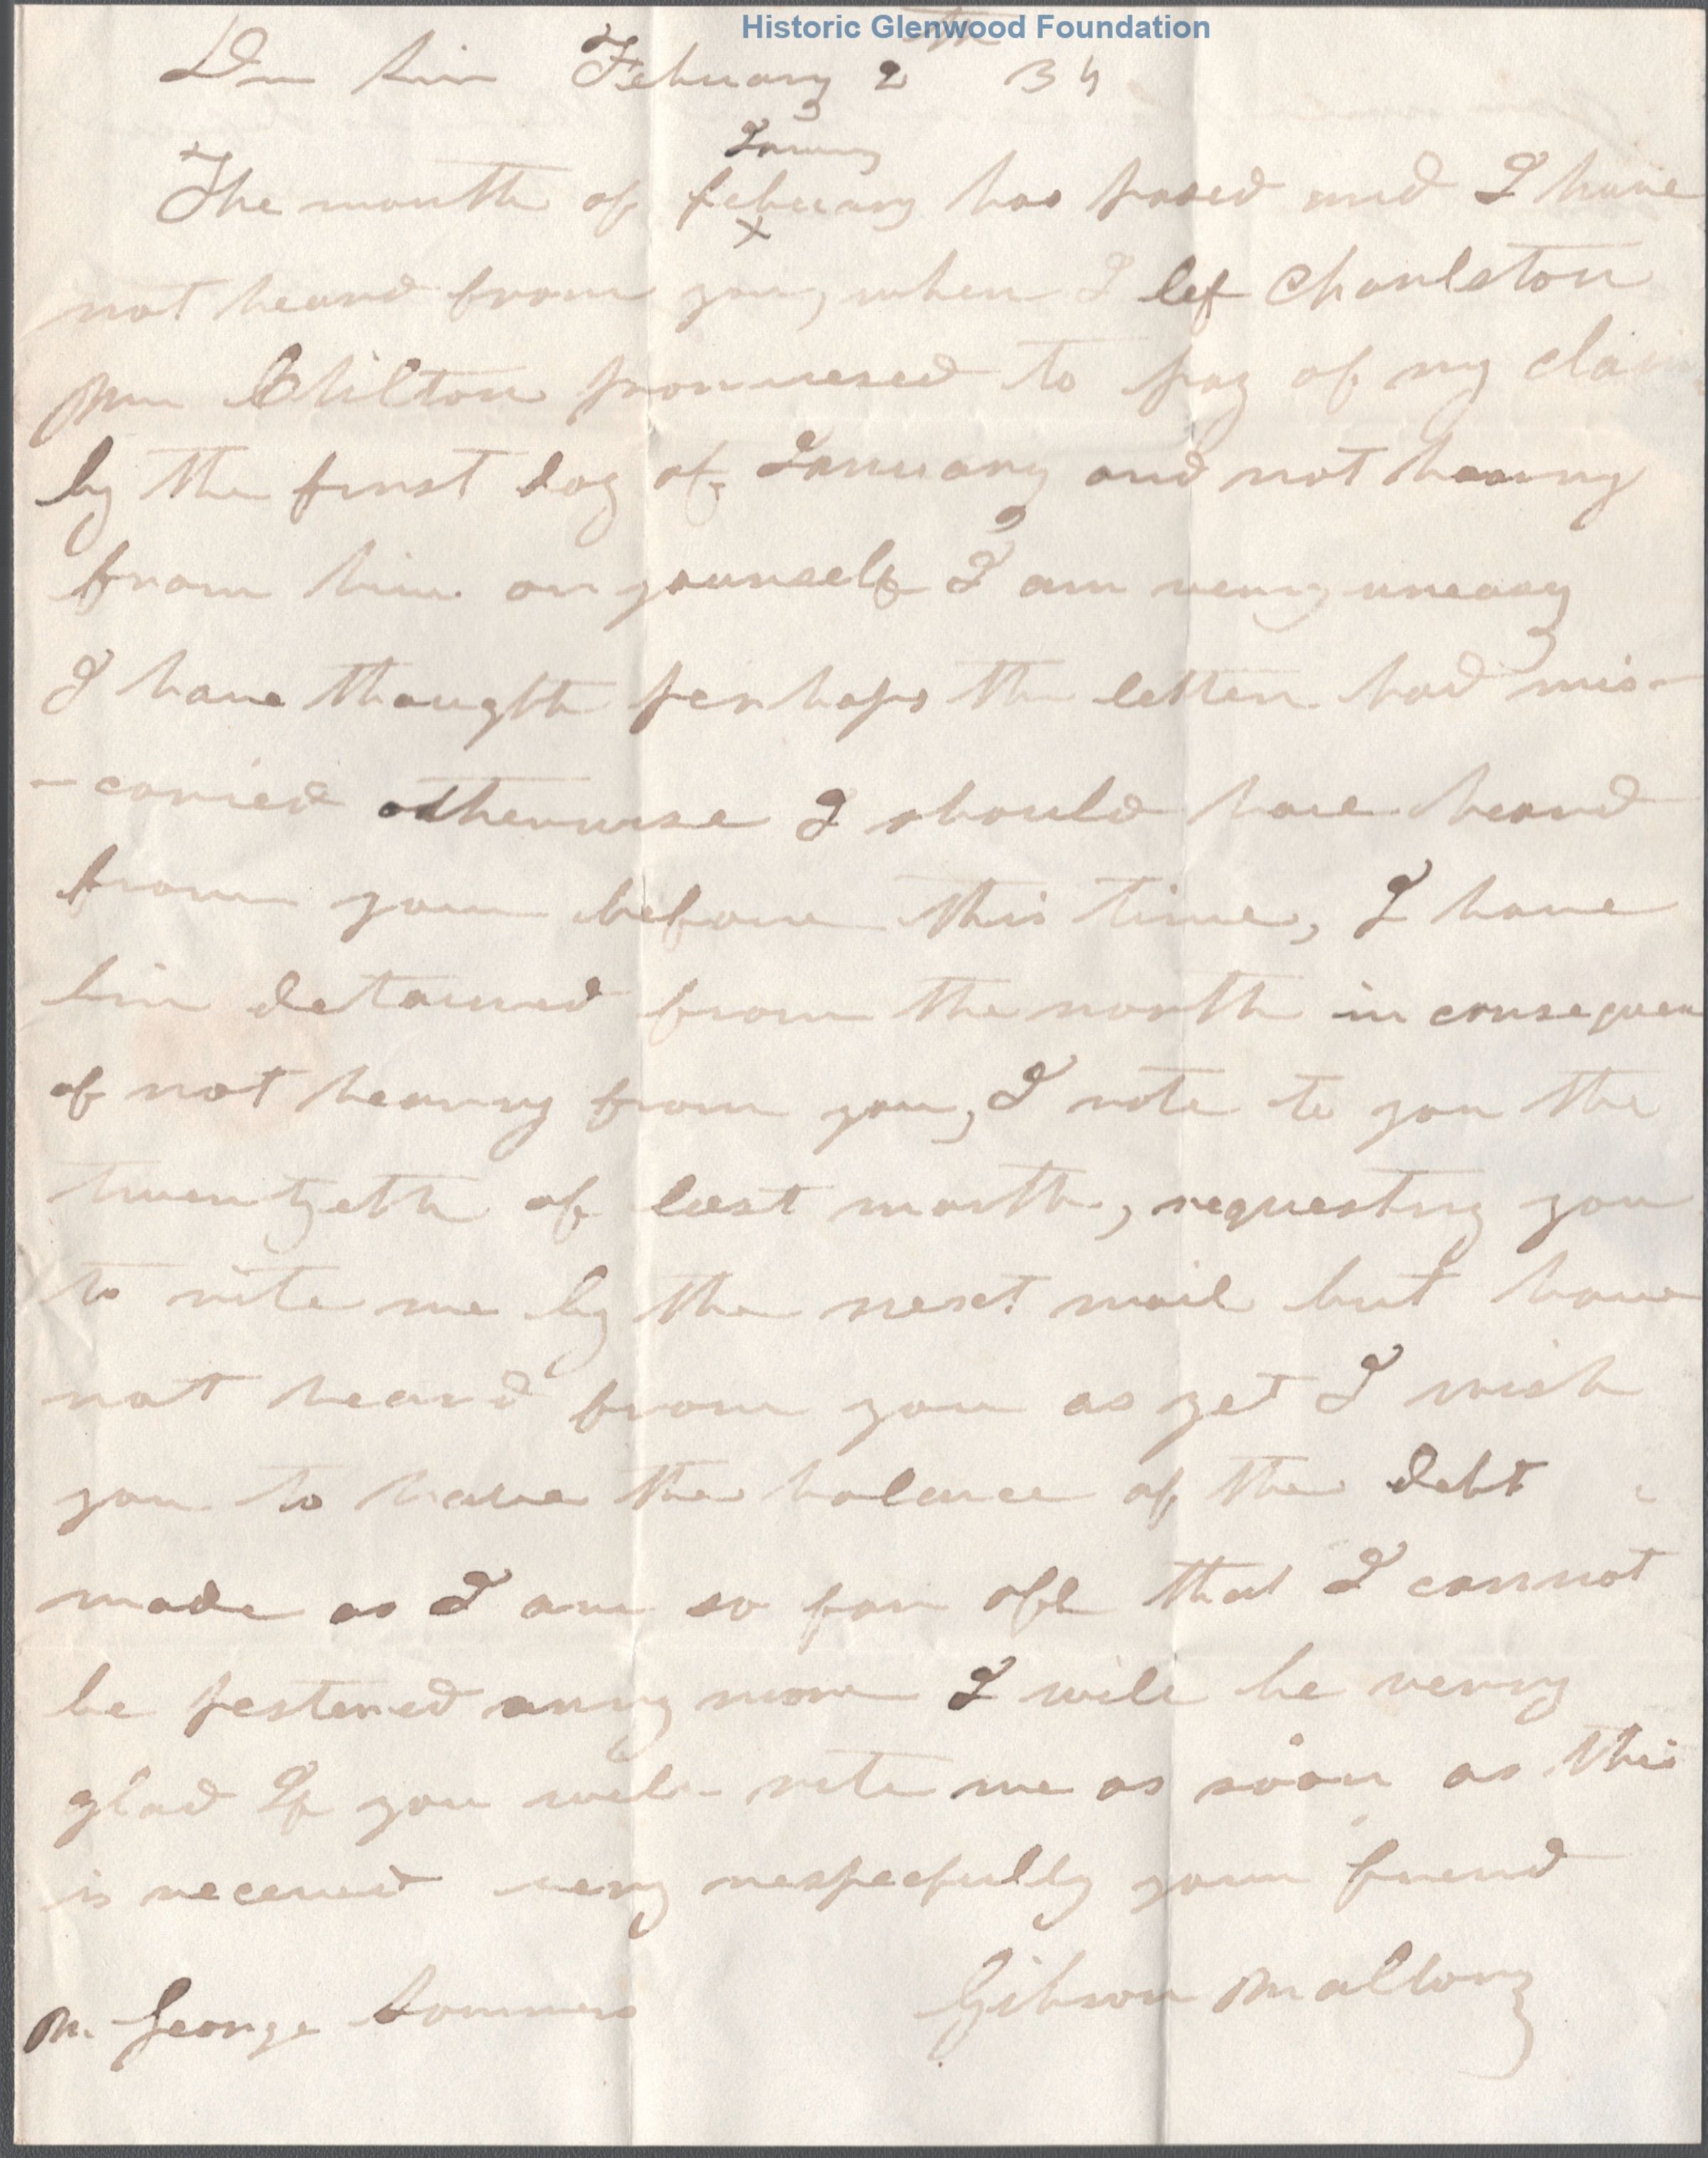 Historic Glenwood Foundation
Dr Sir February 2th 34
January
The month of february has pased and I have
not heard from you, when I lef Charleston
Mr Chilton promiesed to pay of my claim
by the first day of January and not hearing
from him or yourself I am very uneasy
I have thought perhaps the letter had mis-
-caried otherwise I should have heard
from you before this time, I have
bin detained from the north in consequen
of not hearing from you, I rote to you the
twentyeth of last month, requesting you
to rite me by the next mail but have
not heard from you as yet I wish
you to have the balance of the debt
made as I am so far off that I cannot
be pestered any more I will be very
glad If you will rite me as soon as this
is received very respecfully your friend
Gibson Mallory
M. George Summers